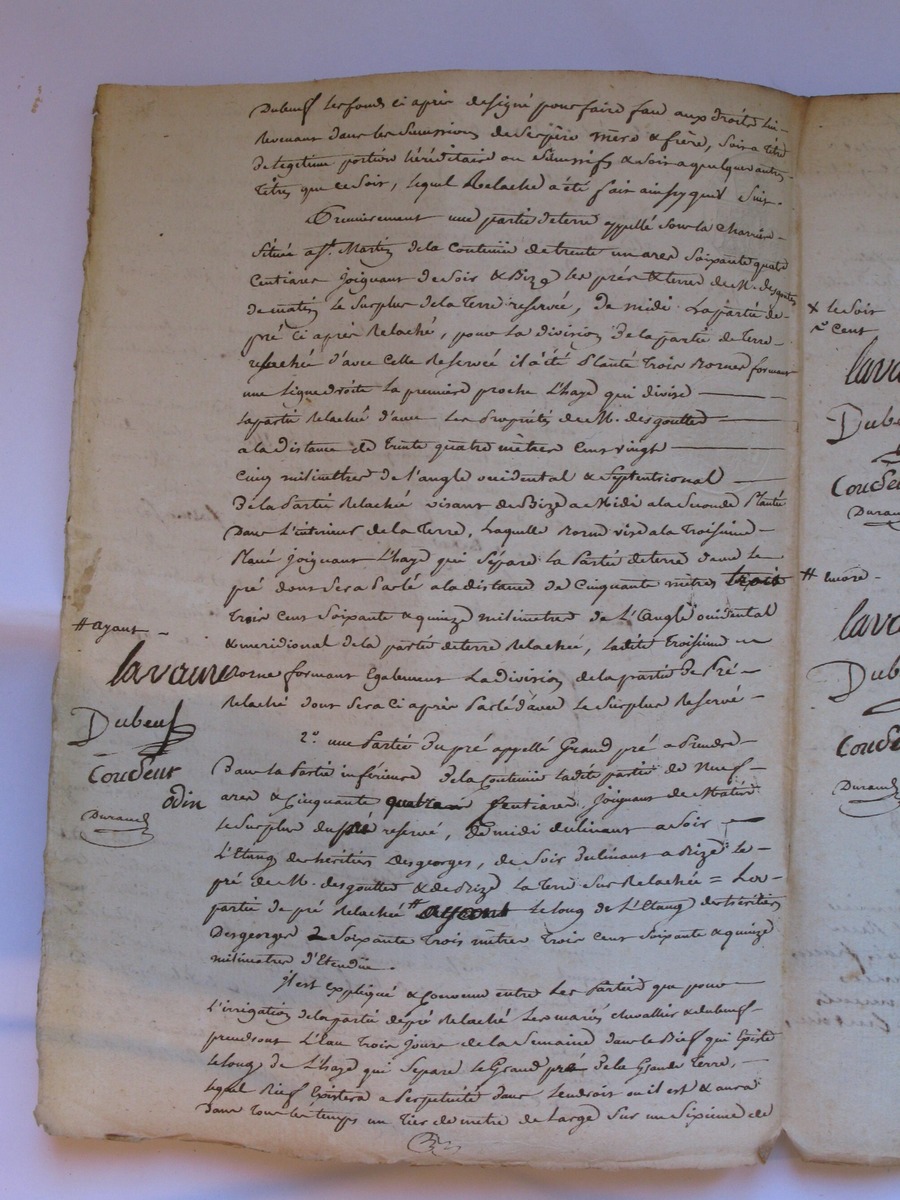 Dubeuf les fonds ci après designé pour faire face aux droits lui
Revenant dans les Successions de ses père mère & frère, soit a titre
de legitime portion héréditaire ou Sucessifs & soit a quelques autres
Titres que ce soit, lequel Relaché a été fait ainsy qu'il Suit.
Premierement une partie de terre appellé Sous la Charrière
Située a St. Martin de la Contenüe de trente un ares Soixante quatre
Centiares joignant de Soir & Bize les prés & terres de M. desgouttes
de matin le Surplus de la Terre reservé, de midi La partie de
pré ci après Relaché, pour la division de la partie de Terre
relaché d'avec celle Reservée il a été Planté Trois Bornes formant
une ligne droite La premiere proche L'haye qui divise
la partie Relaché d'avec Les Propriétés de M. desgouttes
a la distance de Trente quatre mètres Cent vingt
Cinq milimettres de l'angle occidental & Septentrional
De la Partie Relaché visant de Bize a Midi a la Seconde Plantée
Dans L'interieur de la Terre, Laquelle Borne vise a la Troisieme
joignant L'haye qui Sépare La Partie de terre dans Le
pré dont Sera Parlé a la distance de Cinquante mètres trois
Trois Cent Soixante & quinze milimetres de L'Angle occidental
& meridional de la partie de terre Relachée, Ladite Troisieme
Borne formant Egalement La division de la partie de Pré
Relaché dont Sera ci après Parlé d'avec Le Surplus Reservé
2° une Partie du pré appellé Grand pré a Prendre
Dans la Partie inférieure de la Contenüe ladite partie de Neuf
ares & Cinquante quatre Centiares, joignant de Matin
Le Surplus du pré reservé, de midi declinant a Soir
L'Etang des héritiers Desgeorges, de Soir declinant a Bize le
pré de M. desgouttes & de Bize La Terre Sus Relachée = La
partie de pré Relachée # ayant Le long de L'Etang des héritiers
Desgeorges Soixante Trois mètres Trois Cent Soixante & quinze
milimetres d'Etendüe.
Il est expliqué & Convenu entre Les Parties que pour
L'irrigation de la partie de pré Relaché Les mariés chevallier & dubeuf
prendront L'Eau Trois jours de la Semaine dans le Bief qui Existe
le long de L'haye qui Separe le Grand pré de la Grande Terre,
lequel Bief Existera a Perpetuité dans L'endroit ou il est & aura
Dans Tous les temps un Tier de metre de Large Sur un Sixieme de
# ayant
lavaure
Dubeuf
Coudeur
odin
Durand
x le soir
Cent
lava
Dube
Coude
Duran
# encore
lava
Dub
Coude
Durand